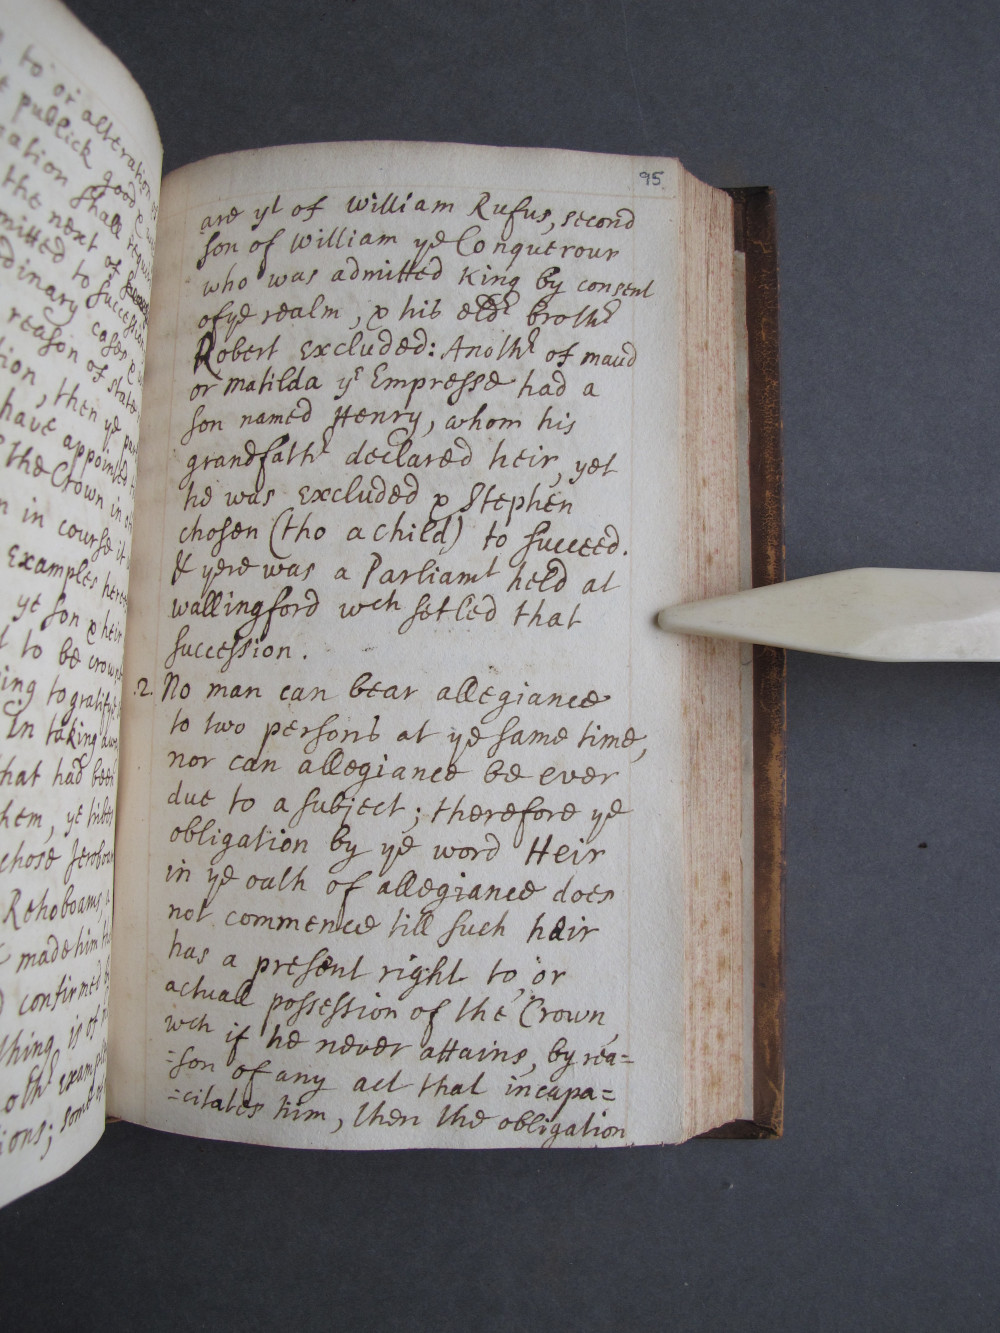 to or alteration of
publick good &
ation shall requir
the next of
mitted to succession
dinary cases &
reason of state
tion, then ye par
have appointed
the Crown in
n in course it
Examples here
ye son & heir
to be crown
ing to gratifye
In taking awa
that had been
hem, ye tribes
chose Jeroboam
Rehoboams,
made him
confirmed
thing is of
oth^r example
ions; some of
95
are y^t of William Rufus, second
son of William ye Conquerour
who was admitted King by consent
of ye realm, & his eld^r broth^r
Robert excluded: Anoth^r of maud
or matilda y^e Empresse had a
son named Henry, whom his
grandfath^r declared heir, yet
he was excluded & Stephen
chosen (tho a child) to succeed.
& yere was a Parliam^t held at
wallingford wch setled that
succession.
.2. No man can bear allegiance
to two persons at ye same time,
nor can allegiance be ever
due to a subject; therefore ye
obligation by ye word Heir
in ye oath of allegiance does
not commence till such heir
has a present right to, or
actuall possession of the Crown,
wch if he never attains, by rea=
=son of any act that incapa=
=citates him, then the obligation